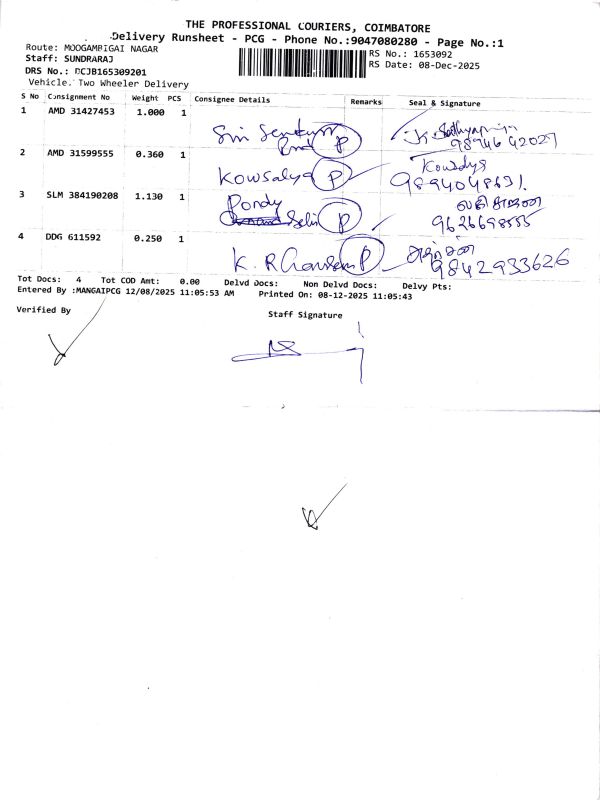 THE PROFESSIONAL COURIERS, COIMBATORE
Delivery Runsheet - PCG - Phone No.:9047080280 - Page No.:1
Route: MOOGAMBIGAI NAGAR
RS No.: 1653092
Staff: SUNDRARAJ
RS Date: 08-Dec-2025
DRS No.: DCJB165309201
Vehicle: Two Wheeler Delivery
S No Consignment No Weight PCS Consignee Details Remarks Seal & Signature
1 AMD 31427453 1.000 1
Sri P
98946 42027
2 AMD 31599555 0.360 1
Kowsalya P Kowsalya
9894048631.
3 SLM 384190208 1.130 1
Pondy
Selvi P
9626698555
4 DDG 611592 0.250 1
K. R P
9842933626
Tot Docs: 4 Tot COD Amt: 0.00 Delvd Docs: Non Delvd Docs: Delvy Pts:
Entered By :MANGAIPCG 12/08/2025 11:05:53 AM Printed On: 08-12-2025 11:05:43
Verified By
Staff Signature